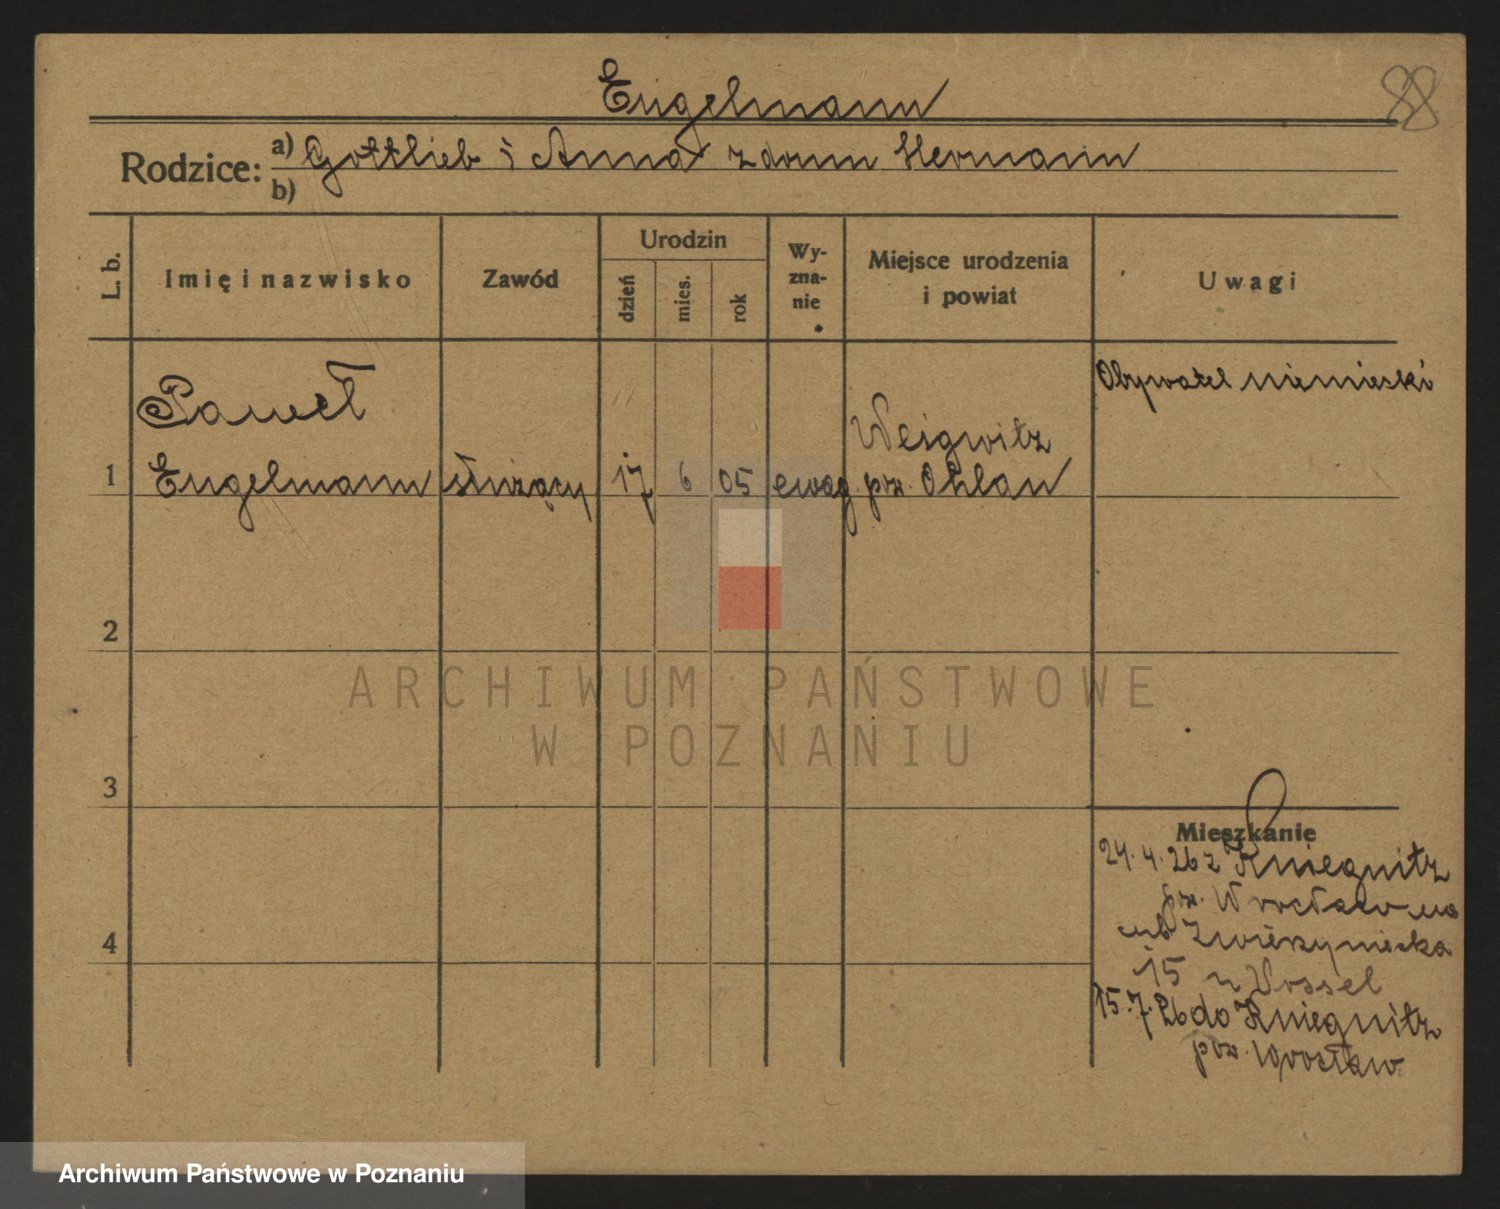 Engelmann
88
Rodzice: a) Gottlieb i Anna z domu Hermann
b)
L. b.
Imię i nazwisko
Zawód
Urodzin
dzień
mies.
rok
Wy-
zna-
nie
Miejsce urodzenia
i powiat
Uwagi
Obywatel niemiecki
Paweł
Weigwitz
1 Engelmann służący 17 6 05 ewag. pow. Ohlau
2
3
4
Mieszkanie
24.4.26 z Kniegnitz
pow. Wrocław na
ul. Zwierzyniecka
15 u Vossel
15.7.26 do Kniegnitz
pow. Wrocław
ARCHIWUM PAŃSTWOWE
W POZNANIU
Archiwum Państwowe w Poznaniu